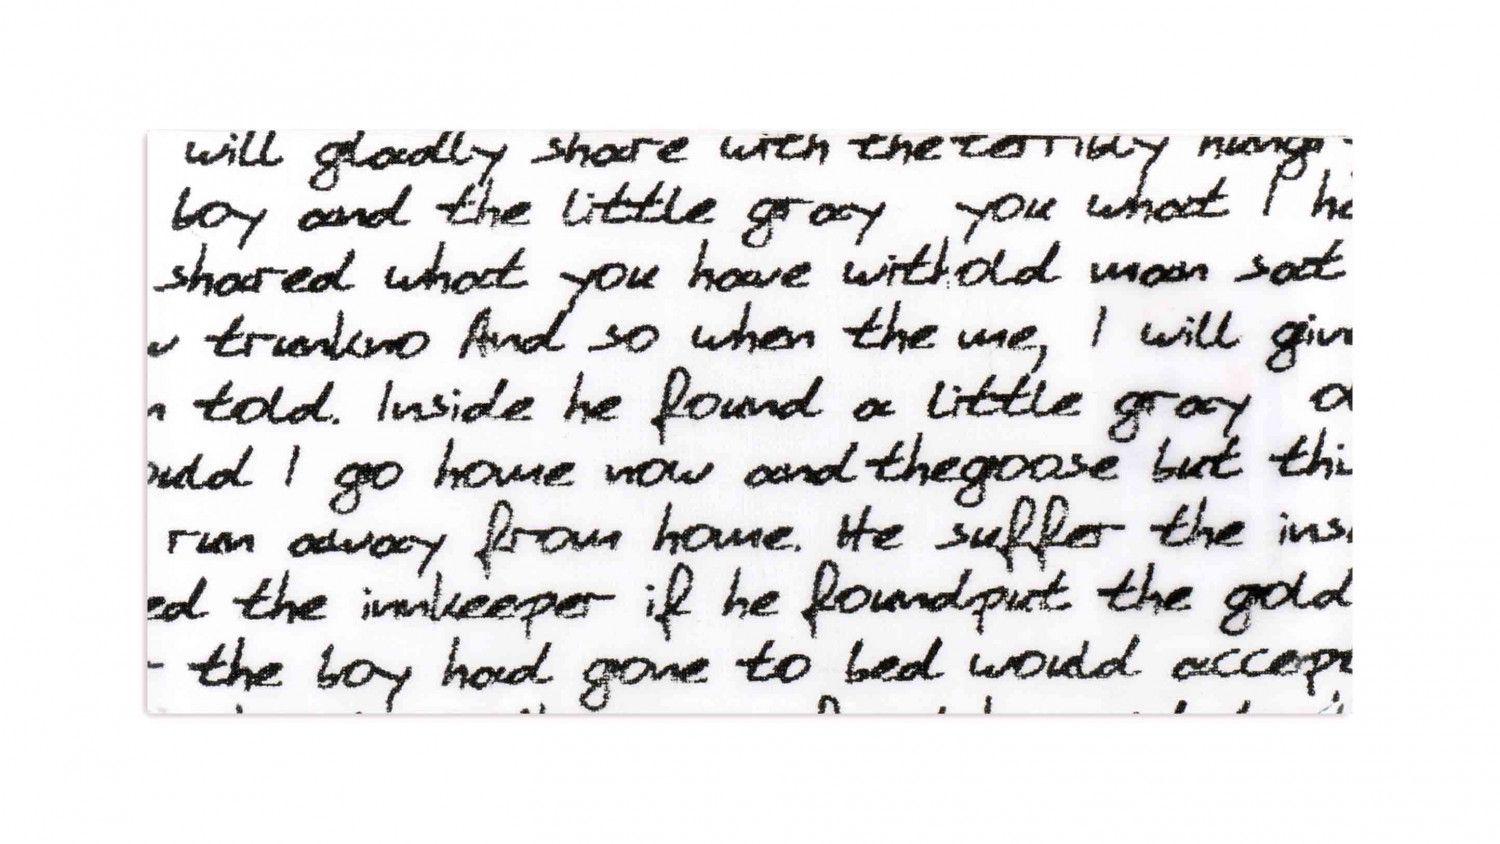 will gladly share with the terribly
boy and the little gray you what I
shared what you have with old man sat
trunkno And so when the me, I will
told. Inside he found a little gray
I go home now and the goose but
run away from home. He suffer the
the innkeeper if he found put the gold
the boy had gone to bed would